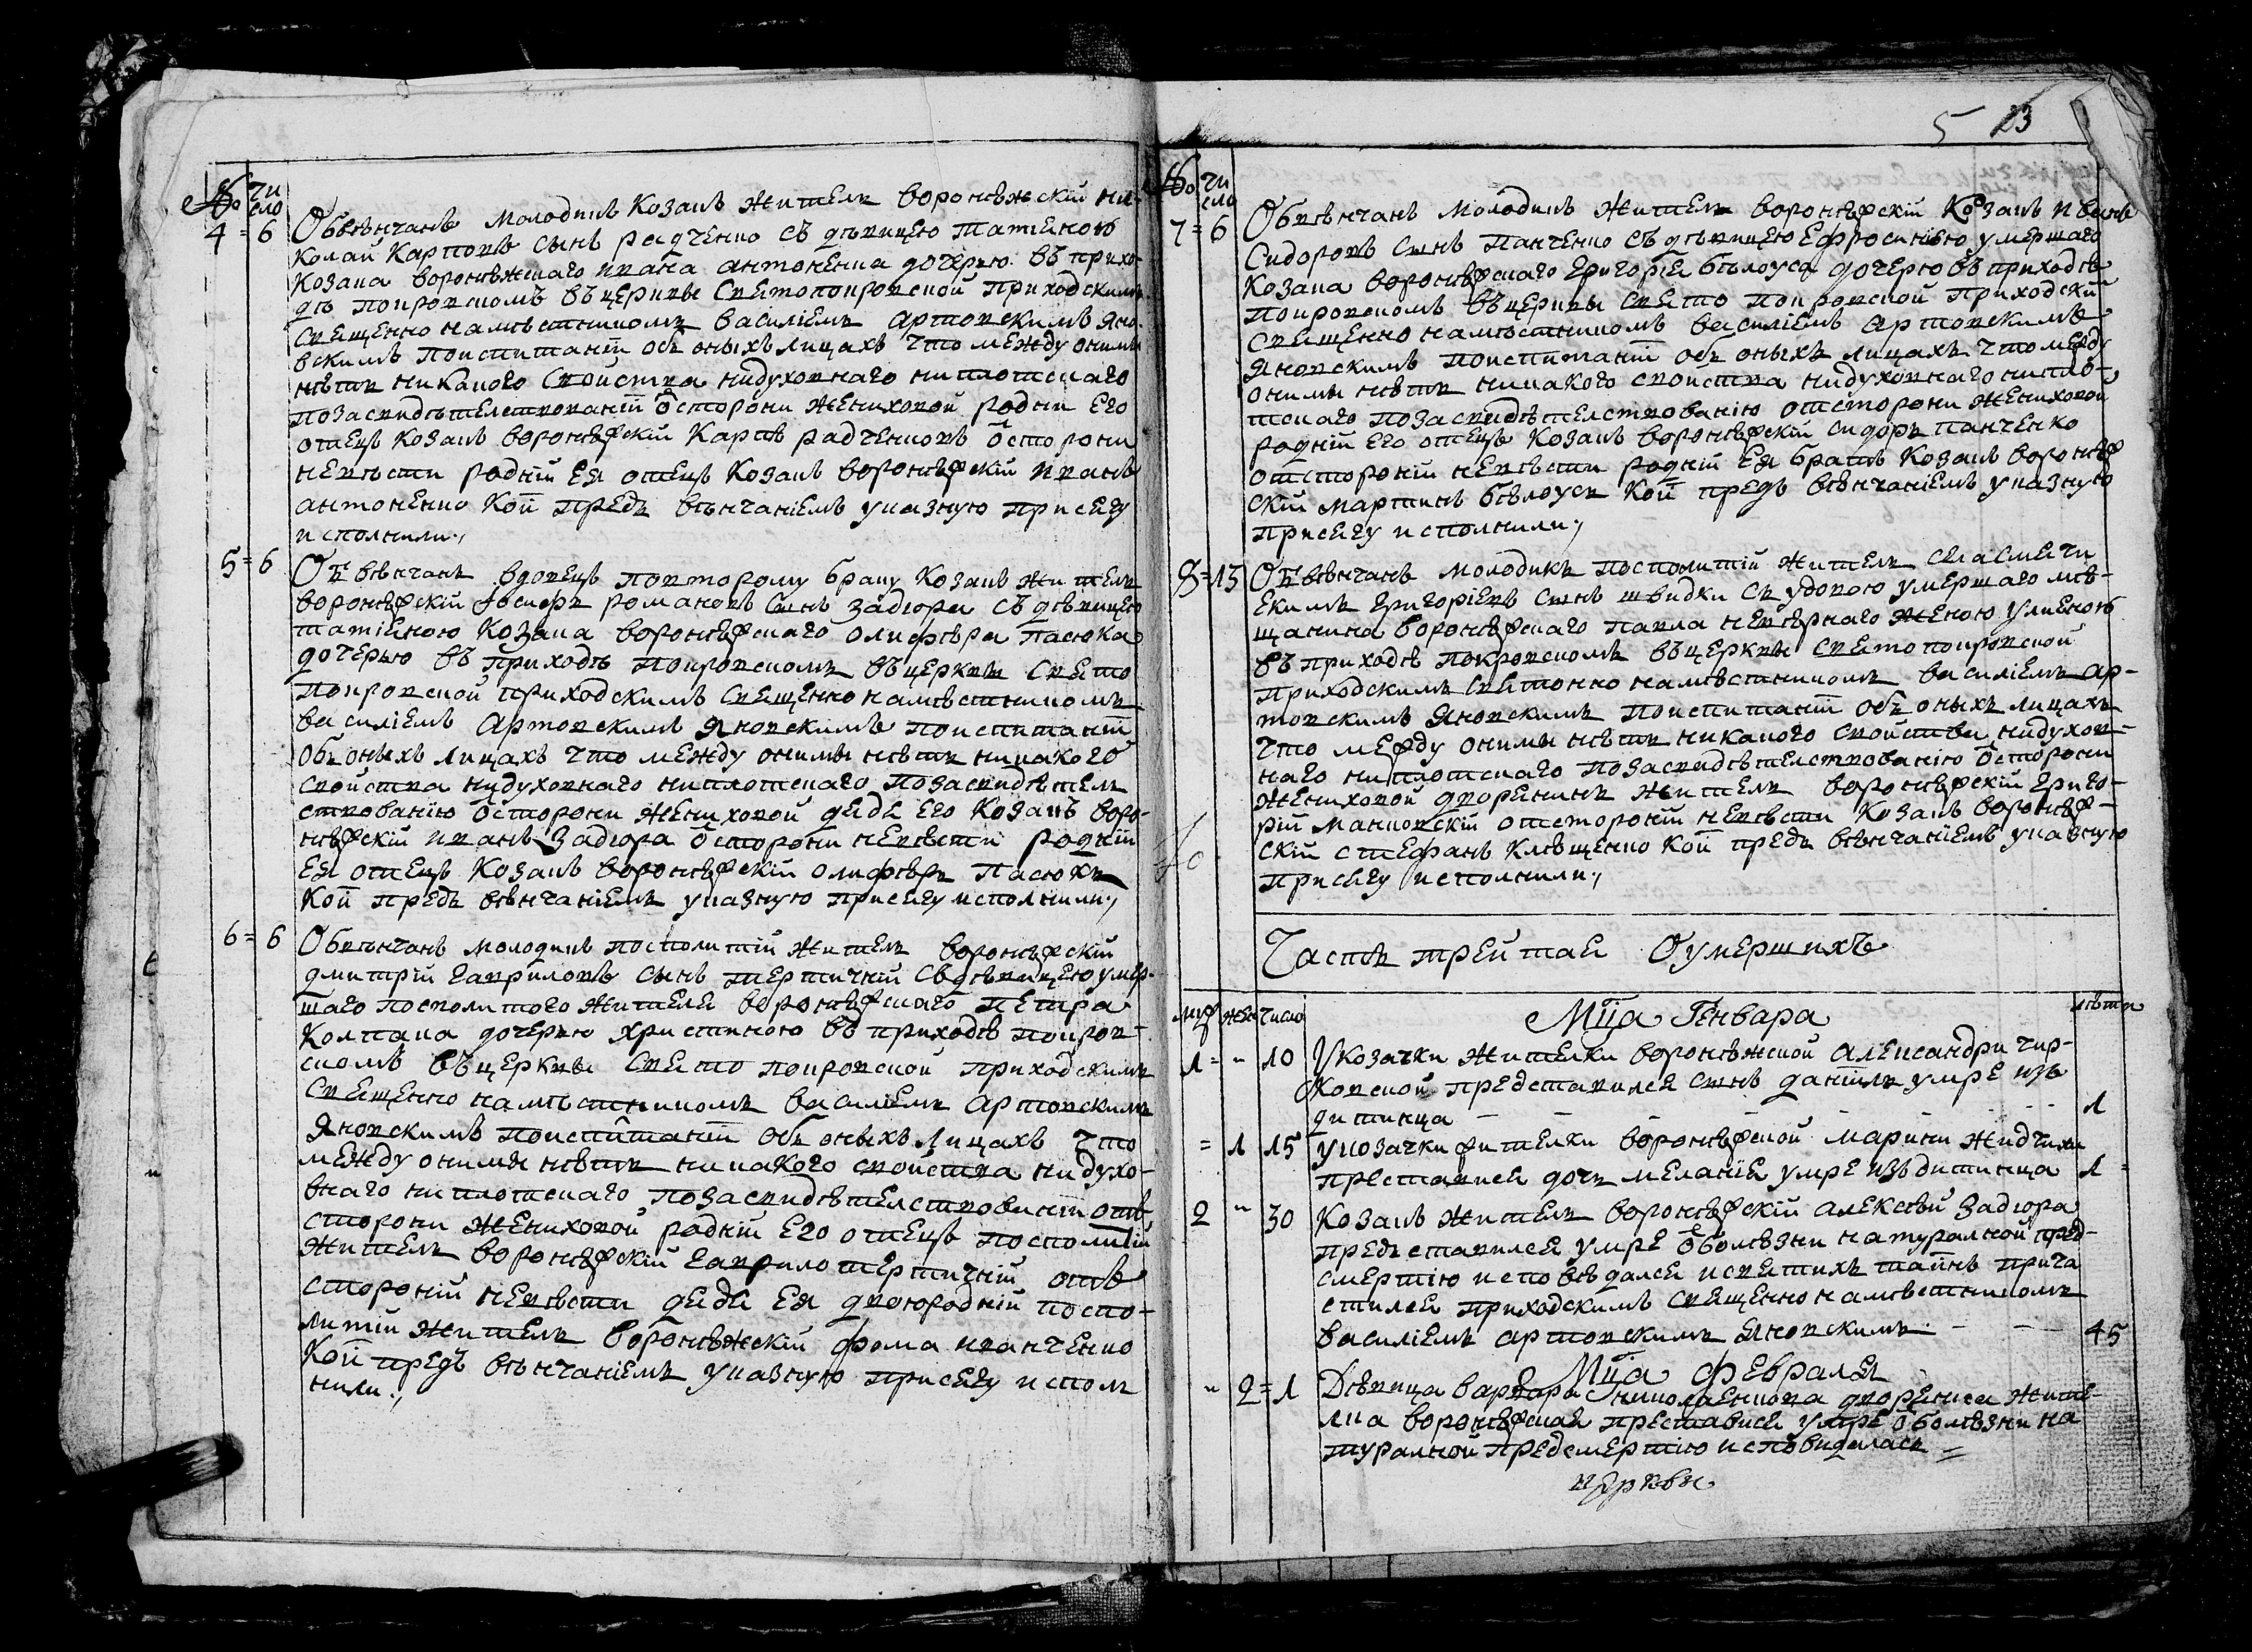 № Число
4 = 6 Обвѣнчанъ молодикъ козакъ житель воронѣжскій Ни-
колай Карповъ сынъ радченко съ дѣвицею татіеною
козака воронѣжскаго ивана антоненка дочерью въ прихо-
дѣ покровскомъ въ церкви Свято покровской приходскимъ
священно намѣстникомъ василіемъ артовскимъ Яно-
вскимъ по испитаніи объ оныхъ лицахъ что между оними
нѣтъ никакого свойства ни духовнаго ни плотскаго
по засвидѣтелствованіи ѿ сторони жениховой родни его
отецъ козакъ воронѣжскій Карпъ радченковъ ѿ сторони
невѣсти родній ея отецъ козакъ воронѣжскій иванъ
антоненко кои предъ вѣнчаніемъ указную присягу
исполнили,
5 = 6 Обвѣнчанъ вдовецъ повторому браку козакъ житель
воронѣжскій Іосифъ романовъ сынъ задюра съ дѣвицею
татіеною козака воронѣжскаго олифѣра пасюка
дочерью въ приходѣ покровскомъ въ церкви Свято
покровской приходскимъ священно намѣстникомъ
василіемъ артовскимъ Яновскимъ по испитаніи
объ оныхъ лицахъ что между оними нѣтъ никакого
свойства ни духовнаго ни плотскаго по засвидѣтел
ствованію ѿ сторони жениховой дядя его козакъ воро-
нѣжскій иванъ Задюра ѿ сторони невѣсти родній
ея отецъ козакъ воронѣжскій олифѣръ пасюкъ
кои предъ вѣнчаніемъ указную присягу исполнили,
6 = 6 Обвѣнчанъ молодикъ посполитій житель воронѣжскій
дмитрій гавриловъ сынъ тертичній съ дѣвицею умер-
шаго посполитого жителя воронѣжскаго петра
колпака дочерью христиною въ приходѣ покров-
скомъ въ церкви Свято покровской приходскимъ
священно намѣстникомъ василіемъ артовскимъ
Яновскимъ по испитаніи объ оныхъ лицахъ что
между оними нѣтъ никакого свойства ни духо-
внаго ни плотскаго по засвидѣтелствованіи отъ
сторони жениховой родній его отецъ посполитій
житель воронѣжскій гаврило тертичній отъ
стороній невѣсти дядя ея двоюродній поспо-
литій житель воронѣжскій фома иванченко
кои предъ вѣнчаніемъ указную присягу исполни
нили,
5 23
№ Число
7 = 6 Обвѣнчанъ молодикъ житель воронѣжскій козакъ иванъ
Сидоровъ сынъ панченко съ дѣвицею Ефросинѣю умершаго
козака воронѣжскаго григорія бѣлоуса дочерю въ приходѣ
покровскомъ въ церкви свято покровской приходскій
священно намѣстникомъ василіемъ артовскимъ
Яновскимъ по испитаніи объ оныхъ лицахъ что между
оними нѣтъ никакого свойства ни духовнаго ни пло-
тскаго по засвидѣтелствованію отсторони жениховой
родній его отецъ козакъ воронѣжскій сидоръ панченко
отстороній невѣсти родній ея братъ козакъ воронѣж
скій мартинъ бѣлоусъ кои предъ вѣнчаніемъ указную
присягу исполнили,
8 = 15 Обвѣнчанъ молодикъ посполитій житель села смячи
Екимъ григоріевъ сынъ швидки съ удовою умершаго мѣ-
щанина воронѣжскаго павла невѣрнаго женою улиеною
въ приходѣ покровскомъ въ церкви свято покровской
приходскимъ намѣстникомъ василіемъ ар-
товскимъ Яновскимъ по испитаніи объ оныхъ лицахъ
что между оними нѣтъ никакого свойства ни духов-
наго ни плотскаго по засвидѣтелствованію ѿ сторони
жениховой дворянинъ житель воронѣжскій григо-
рій манковскій отстороній невѣсти козакъ воронѣж-
скій стефанъ клѣщенко кои предъ вѣнчаніемъ указную
присягу исполнили,
Часть трейтая О умершихъ
муж жен число Мца Генвара лѣта
1 = " 10 У козачки жителки воронѣжской александри чир-
ковской представился сынъ даніилъ умре изъ
дитинца 1
= 1 15 у козачки жителки воронѣжской марини жидчихи
преставися дочь меланія умре изъ дитинца 1
2 " 30 Козакъ житель воронѣжскій алексѣй задюра
представился умре ѿ болѣзни натуралной пред-
смертію исповѣдался и святихъ таинъ прича
стился приходскимъ священно намѣстникомъ
василіемъ артовскимъ яновскимъ 45
Мца Февраля
" 2 = 1 Дѣвица варвара николаенкова дворянка жите-
лка воронѣжская преставися умре ѿ болѣзни на
туралной предсмертію исповидалась
церкви